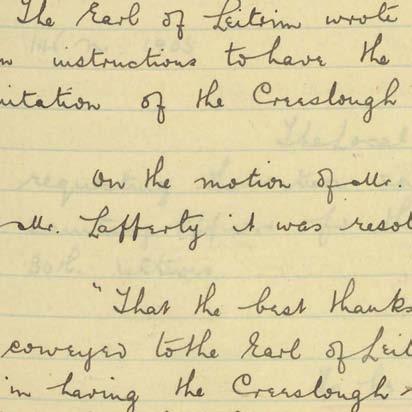 The Earl of Leitrim wrote
n instructions to have the
itation of the Creeslough
On the motion of Mr.
Mr. Lafferty it was resol
"That the best thanks
coweyed to the Earl of Leit
in having the Creeslough